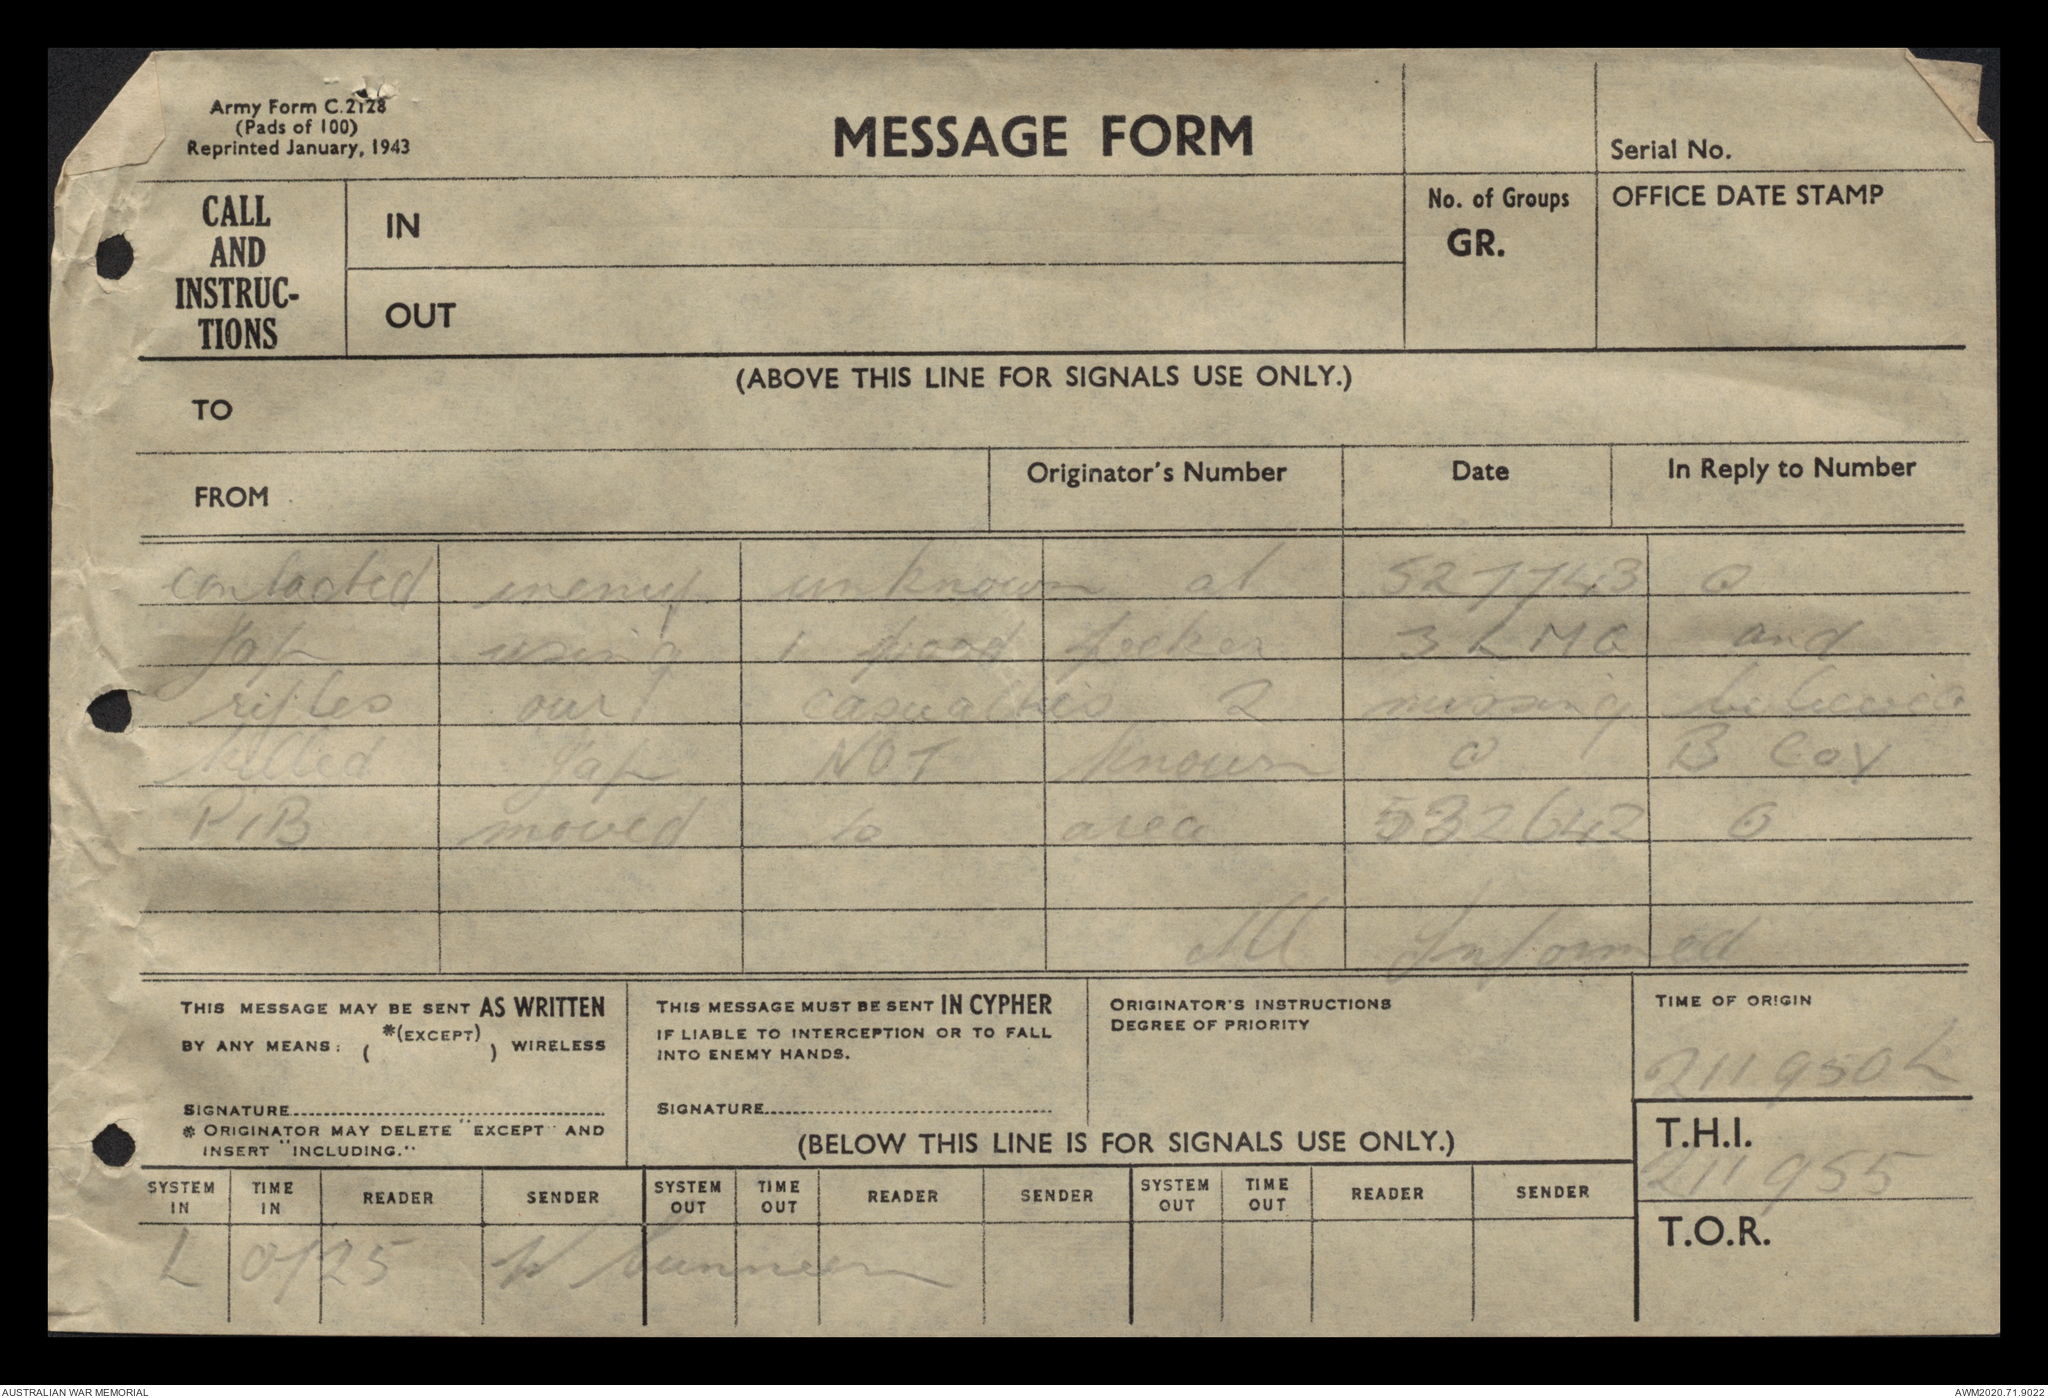 Army Form C.2128
(Pads of 100)
Reprinted January, 1943
MESSAGE FORM
Serial No.
CALL AND INSTRUC-TIONS
IN
OUT
No. of Groups
GR.
OFFICE DATE STAMP
(ABOVE THIS LINE FOR SIGNALS USE ONLY.)
TO
FROM
Originator's Number
Date
In Reply to Number
contacted enemy unknown at 527743 O
Jap using 1 wood pecker 3 LMG and
rifles our casualties 2 missing believed
killed Jap NOT known O B Coy
PIB moved to area 532642 O
All Informed
THIS MESSAGE MAY BE SENT AS WRITTEN
BY ANY MEANS: ( *(EXCEPT) ) WIRELESS
SIGNATURE
* ORIGINATOR MAY DELETE "EXCEPT" AND
INSERT "INCLUDING."
THIS MESSAGE MUST BE SENT IN CYPHER
IF LIABLE TO INTERCEPTION OR TO FALL
INTO ENEMY HANDS.
SIGNATURE
ORIGINATOR'S INSTRUCTIONS
DEGREE OF PRIORITY
TIME OF ORIGIN
211950L
(BELOW THIS LINE IS FOR SIGNALS USE ONLY.)
T.H.I.
211955
T.O.R.
SYSTEM IN
TIME IN
READER
SENDER
SYSTEM OUT
TIME OUT
READER
SENDER
SYSTEM OUT
TIME OUT
READER
SENDER
L
AUSTRALIAN WAR MEMORIAL
AWM2020.71.9022